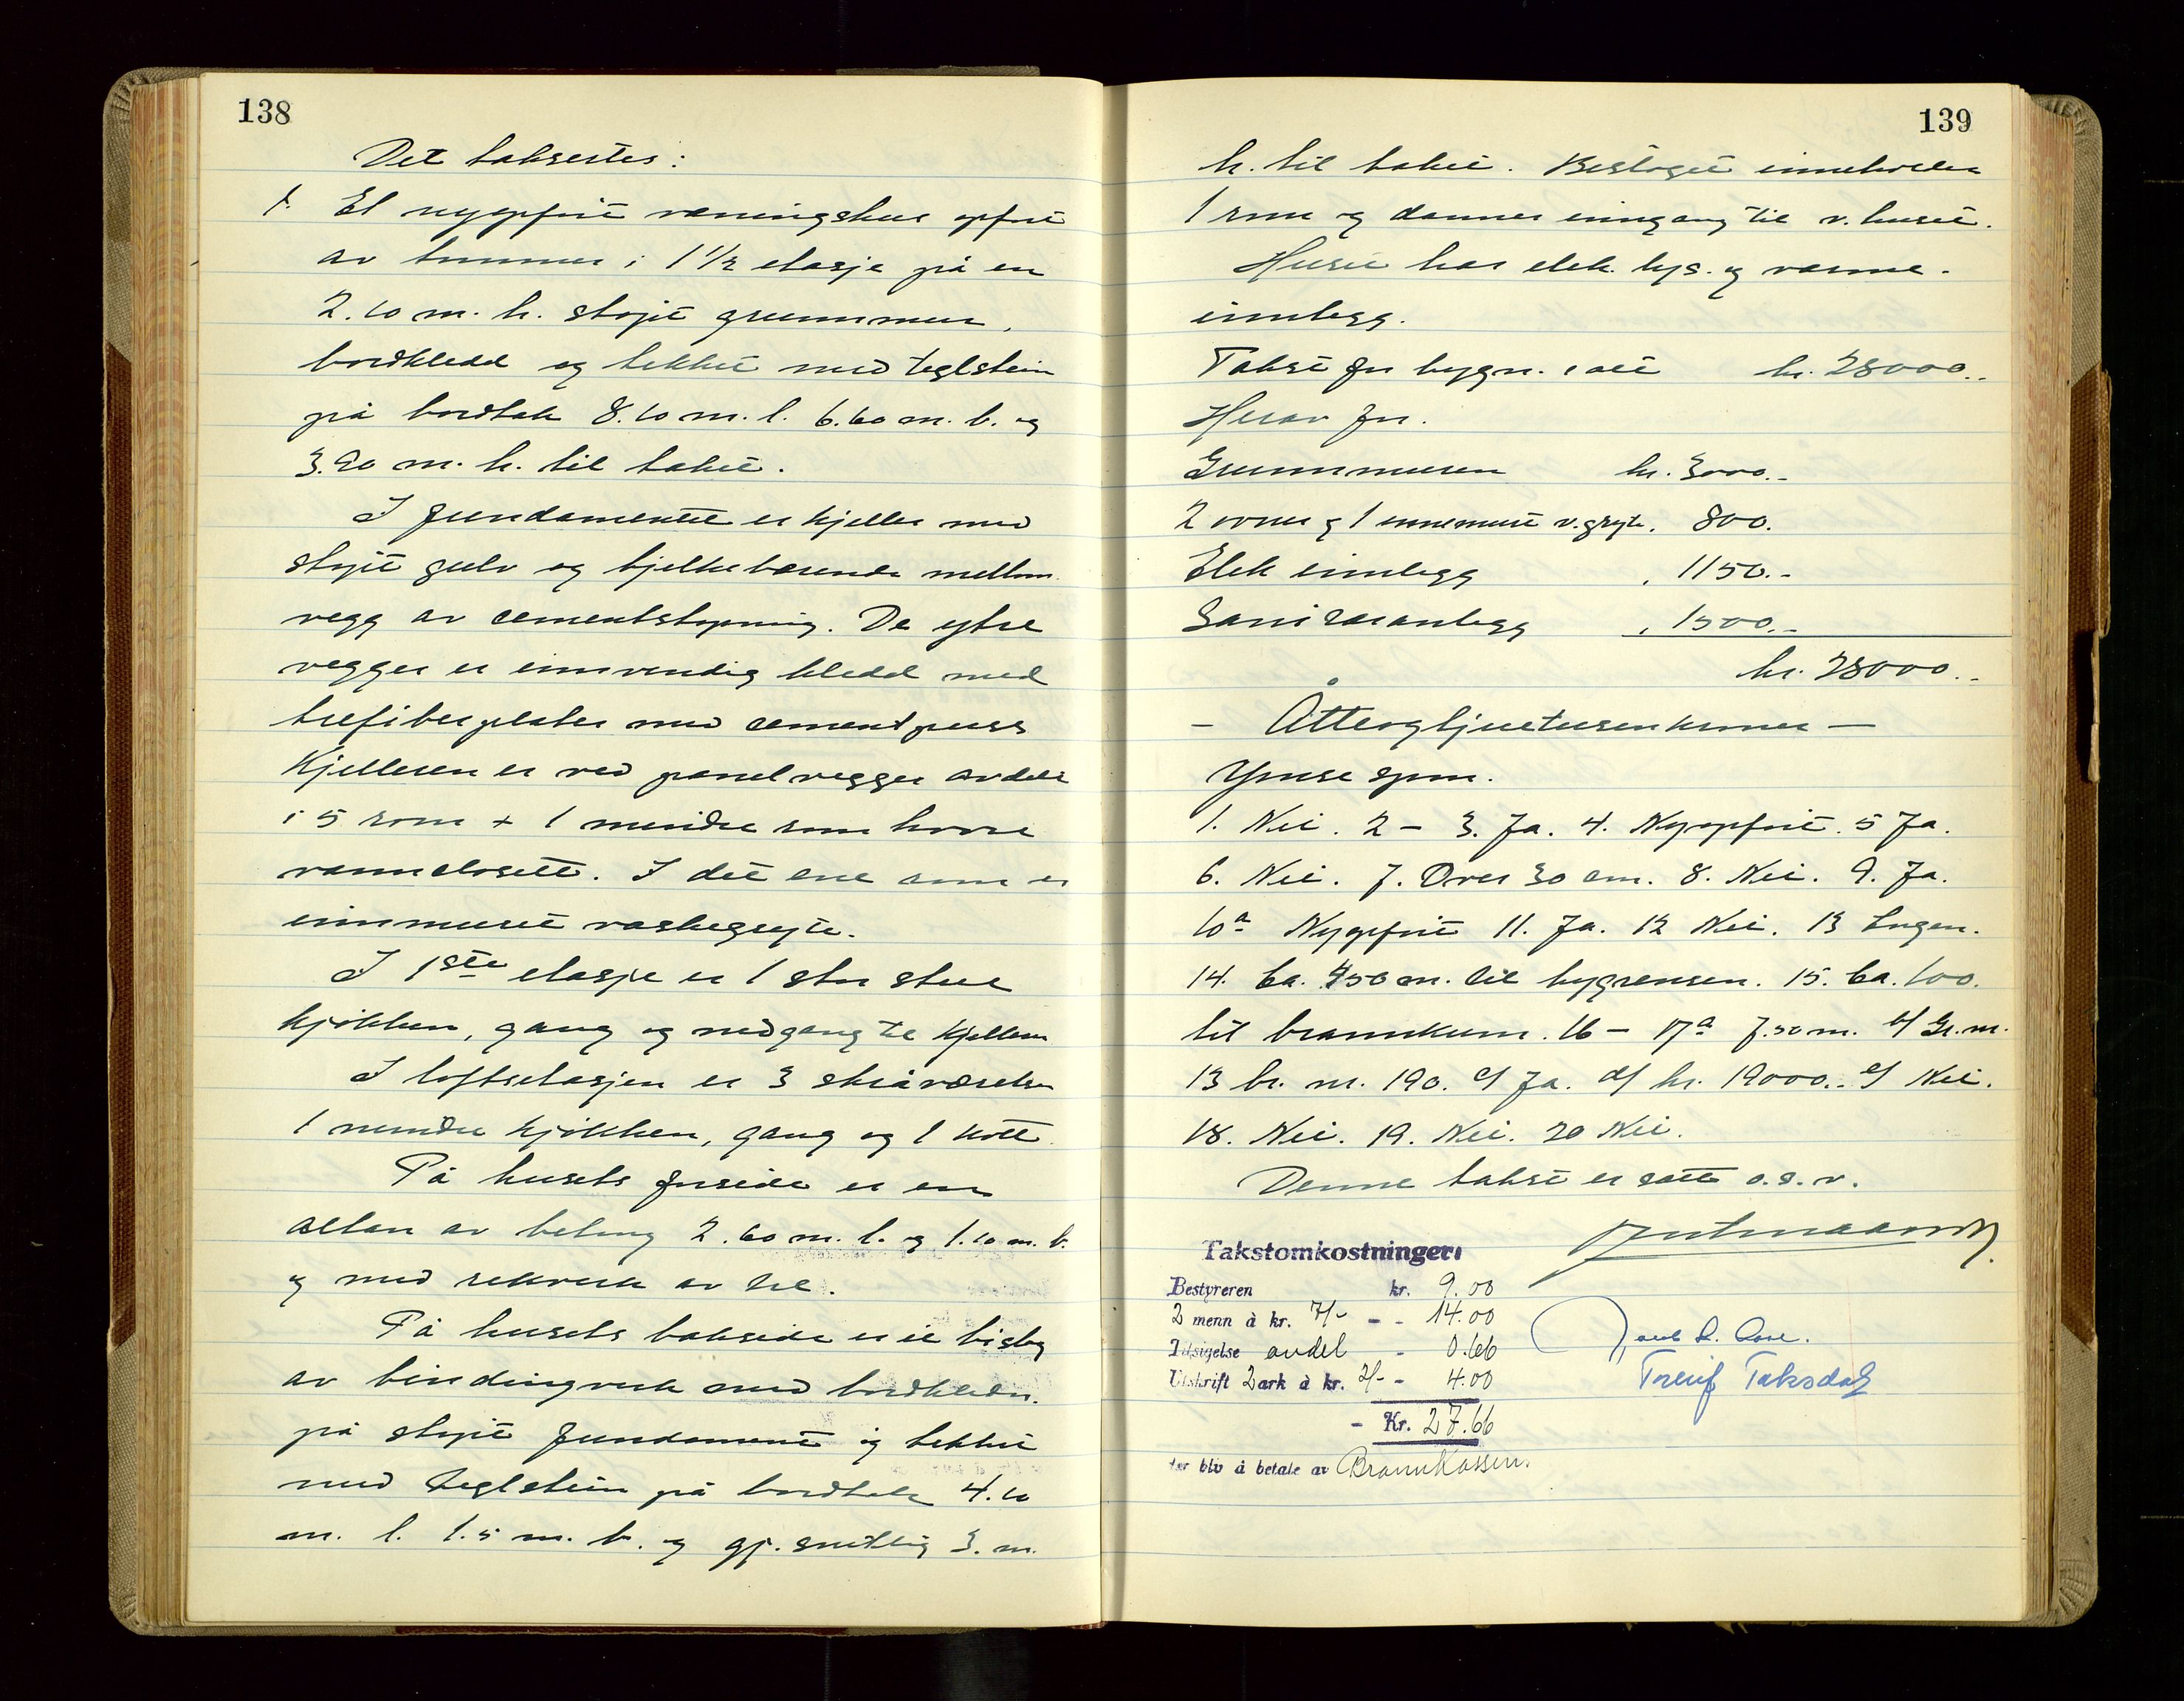 138
Det takseres:
1. Et nyoppført våningshus opført
av tømmer i 1 1/2 etasje på en
2.10 m. h. støpt grunnmur,
bordkledd og tekket med teglstein
på bordtak 8.10 m. l. 6.60 m. b. og
3.90 m. h. til taket.
I fundamentet er kjeller med
støpt gulv og bjelkebærende mellom
vegg av cementstøpning. De ytre
vegger er innvendig kledd med
trefiberplater med cementpuss
Kjelleren er ved panelvegger avdelt
i 5 rom + 1 mindre rom hvori
vannclosett. I det ene rom er
innmuret vaskegryte.
I 1ste etasje er 1 stor stue
kjøkken, gang og nedgang til kjelleren
I loftsetasjen er 3 skråværelser
1 mindre kjøkken, gang og 1 kott.
På husets forside er en
altan av betong 2.60 m. l. og 1.10 m. b.
og med rekverk av tre.
På husets bakside er et bislag
av bindingverk med bordkledn.
på støpt fundament og tekket
med teglstein på bordtak 4.10
m. l. 1.5 m. b. og gj. snittlig 3. m.
139
h. til taket. Bislaget inneholder
1 rom og danner inngang til v. huset.
Huset har elek. lys. og varme-
innlegg.
Takst for bygn. i alt kr. 28000.-
Herav for.
Grunnmuren kr. 3000.-
2 ovner og 1 innemuret v.gryte. 800.
Elek innlegg " 1150.-
Sanitæranlegg " 1500.-
kr. 28000.-
- Åtteogtjuetusenkroner -
Ymse spm.
1. Nei. 2 - 3. Ja. 4. Nyoppført. 5 Ja.
6. Nei. 7. Over 30 cm. 8. Nei. 9. Ja.
10a Nyopført 11. Ja. 12 Nei. 13 Ingen.
14. Ca. 450 m. til bygrensen. 15. Ca. 100.
til brannkum. 16 - 17a 7.50 m. b/ Gr. nr.
13 br. nr. 190. c/ Ja. d/ kr. 19000.- e/ Nei.
18. Nei. 19. Nei. 20 Nei.
Denne takst er satt o.s.v.
Takstomkostninger:
Bestyreren kr. 9.00
2 menn à kr. 7/- - - 14.00
Tilsigelse andel - 0.66
Utskrift 2 ark à kr. 2/- - 4.00
- Kr. 27.66
som blir å betale av Brannkassen.
Torleif Taksdal